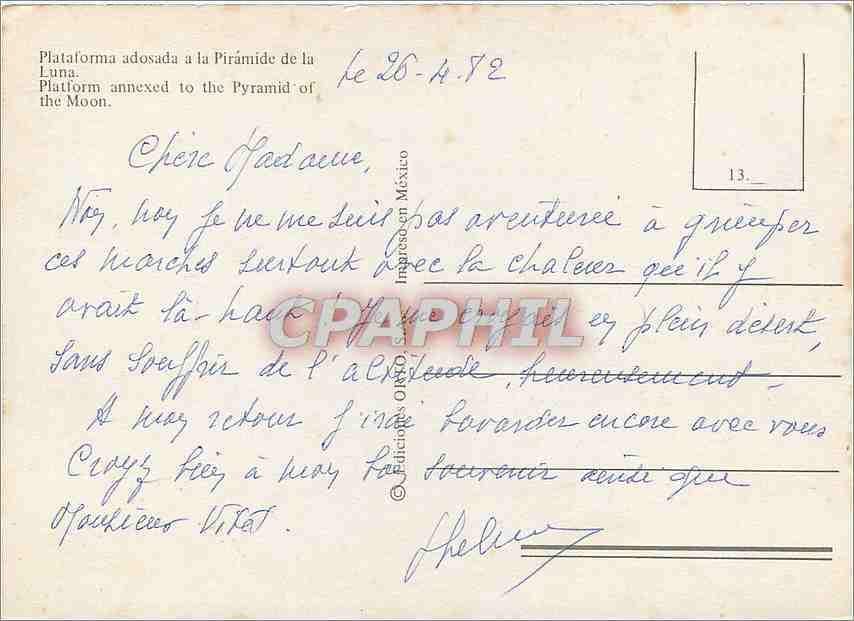 Plataforma adosada a la Pirámide de la
Luna.
Platform annexed to the Pyramid of
the Moon.
Le 26-4-82
13.__
Chère Madame,
Non, non je ne me suis pas aventurée à grimper
ces marches surtout avec la chaleur qu'il y
avait là-haut ! Je me croyais en plein désert,
sans souffrir de l'altitude, heureusement.
A mon retour j'irai bavarder encore avec vous
Croyez bien à mon bon souvenir ainsi que
Monsieur
© Ediciones ORTO, S.A. Impreso en México
CPAPHIL